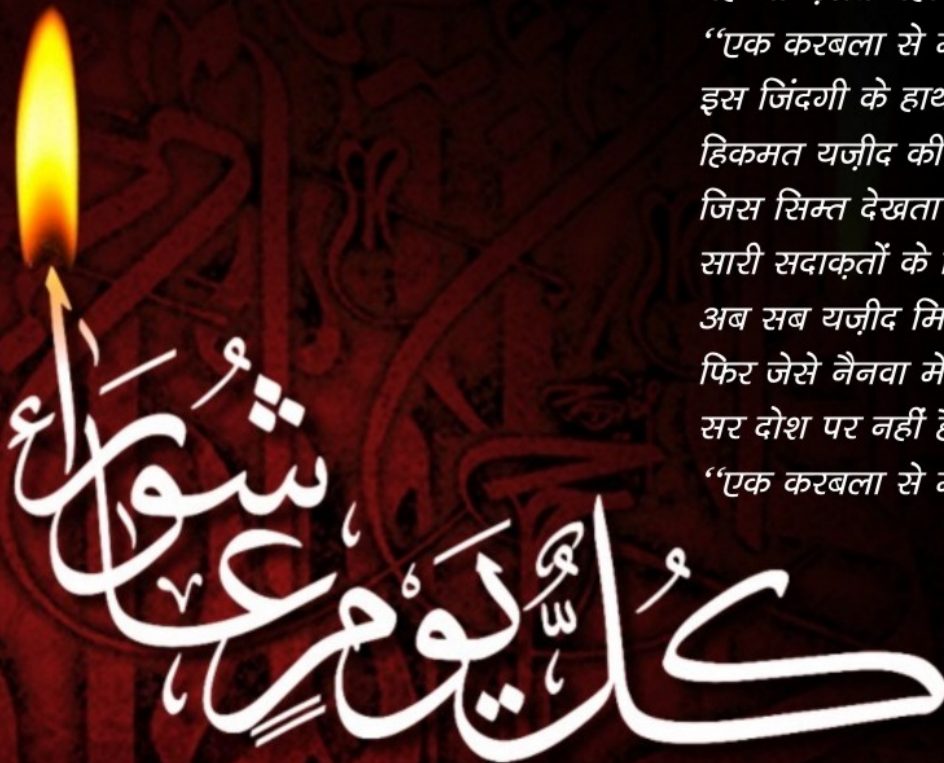 “एक करबला से
इस जिंदगी के
हिकमत यज़ीद की
जिस सिम्त देखता
सारी सदाक़तों के
अब सब यज़ीद
फिर जेसे नैनवा
सर दोश पर नहीं
“एक करबला से
كُلُّ يَوْمٍ عَاشُورَاء